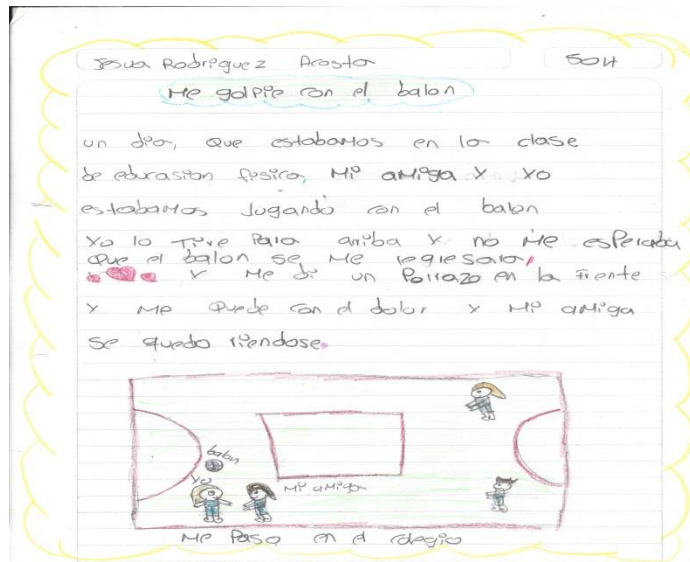 Josua Rodriguez Acosta 504
Me golpie con el balon
un dia, que estabamos en la clase
de educasion fisica, Mi amiga y yo
estabamos Jugando con el balon
Yo lo Tire Para arriba y no Me esperaba
que el balon se Me regresara,
y Me di un Porrazo en la Frente
y Me quede con el dolor y Mi amiga
se quedo riendose.
balon
Yo
Mi amiga
Me Paso en el colegio